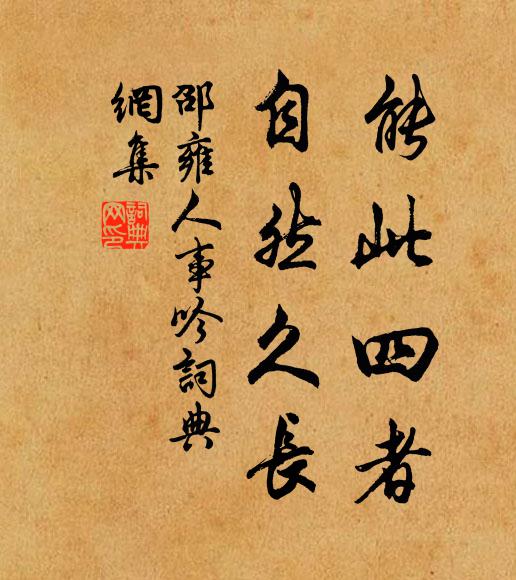 能此四者
自然久長
邵雍人事吟詞典
網集
詞典
网印